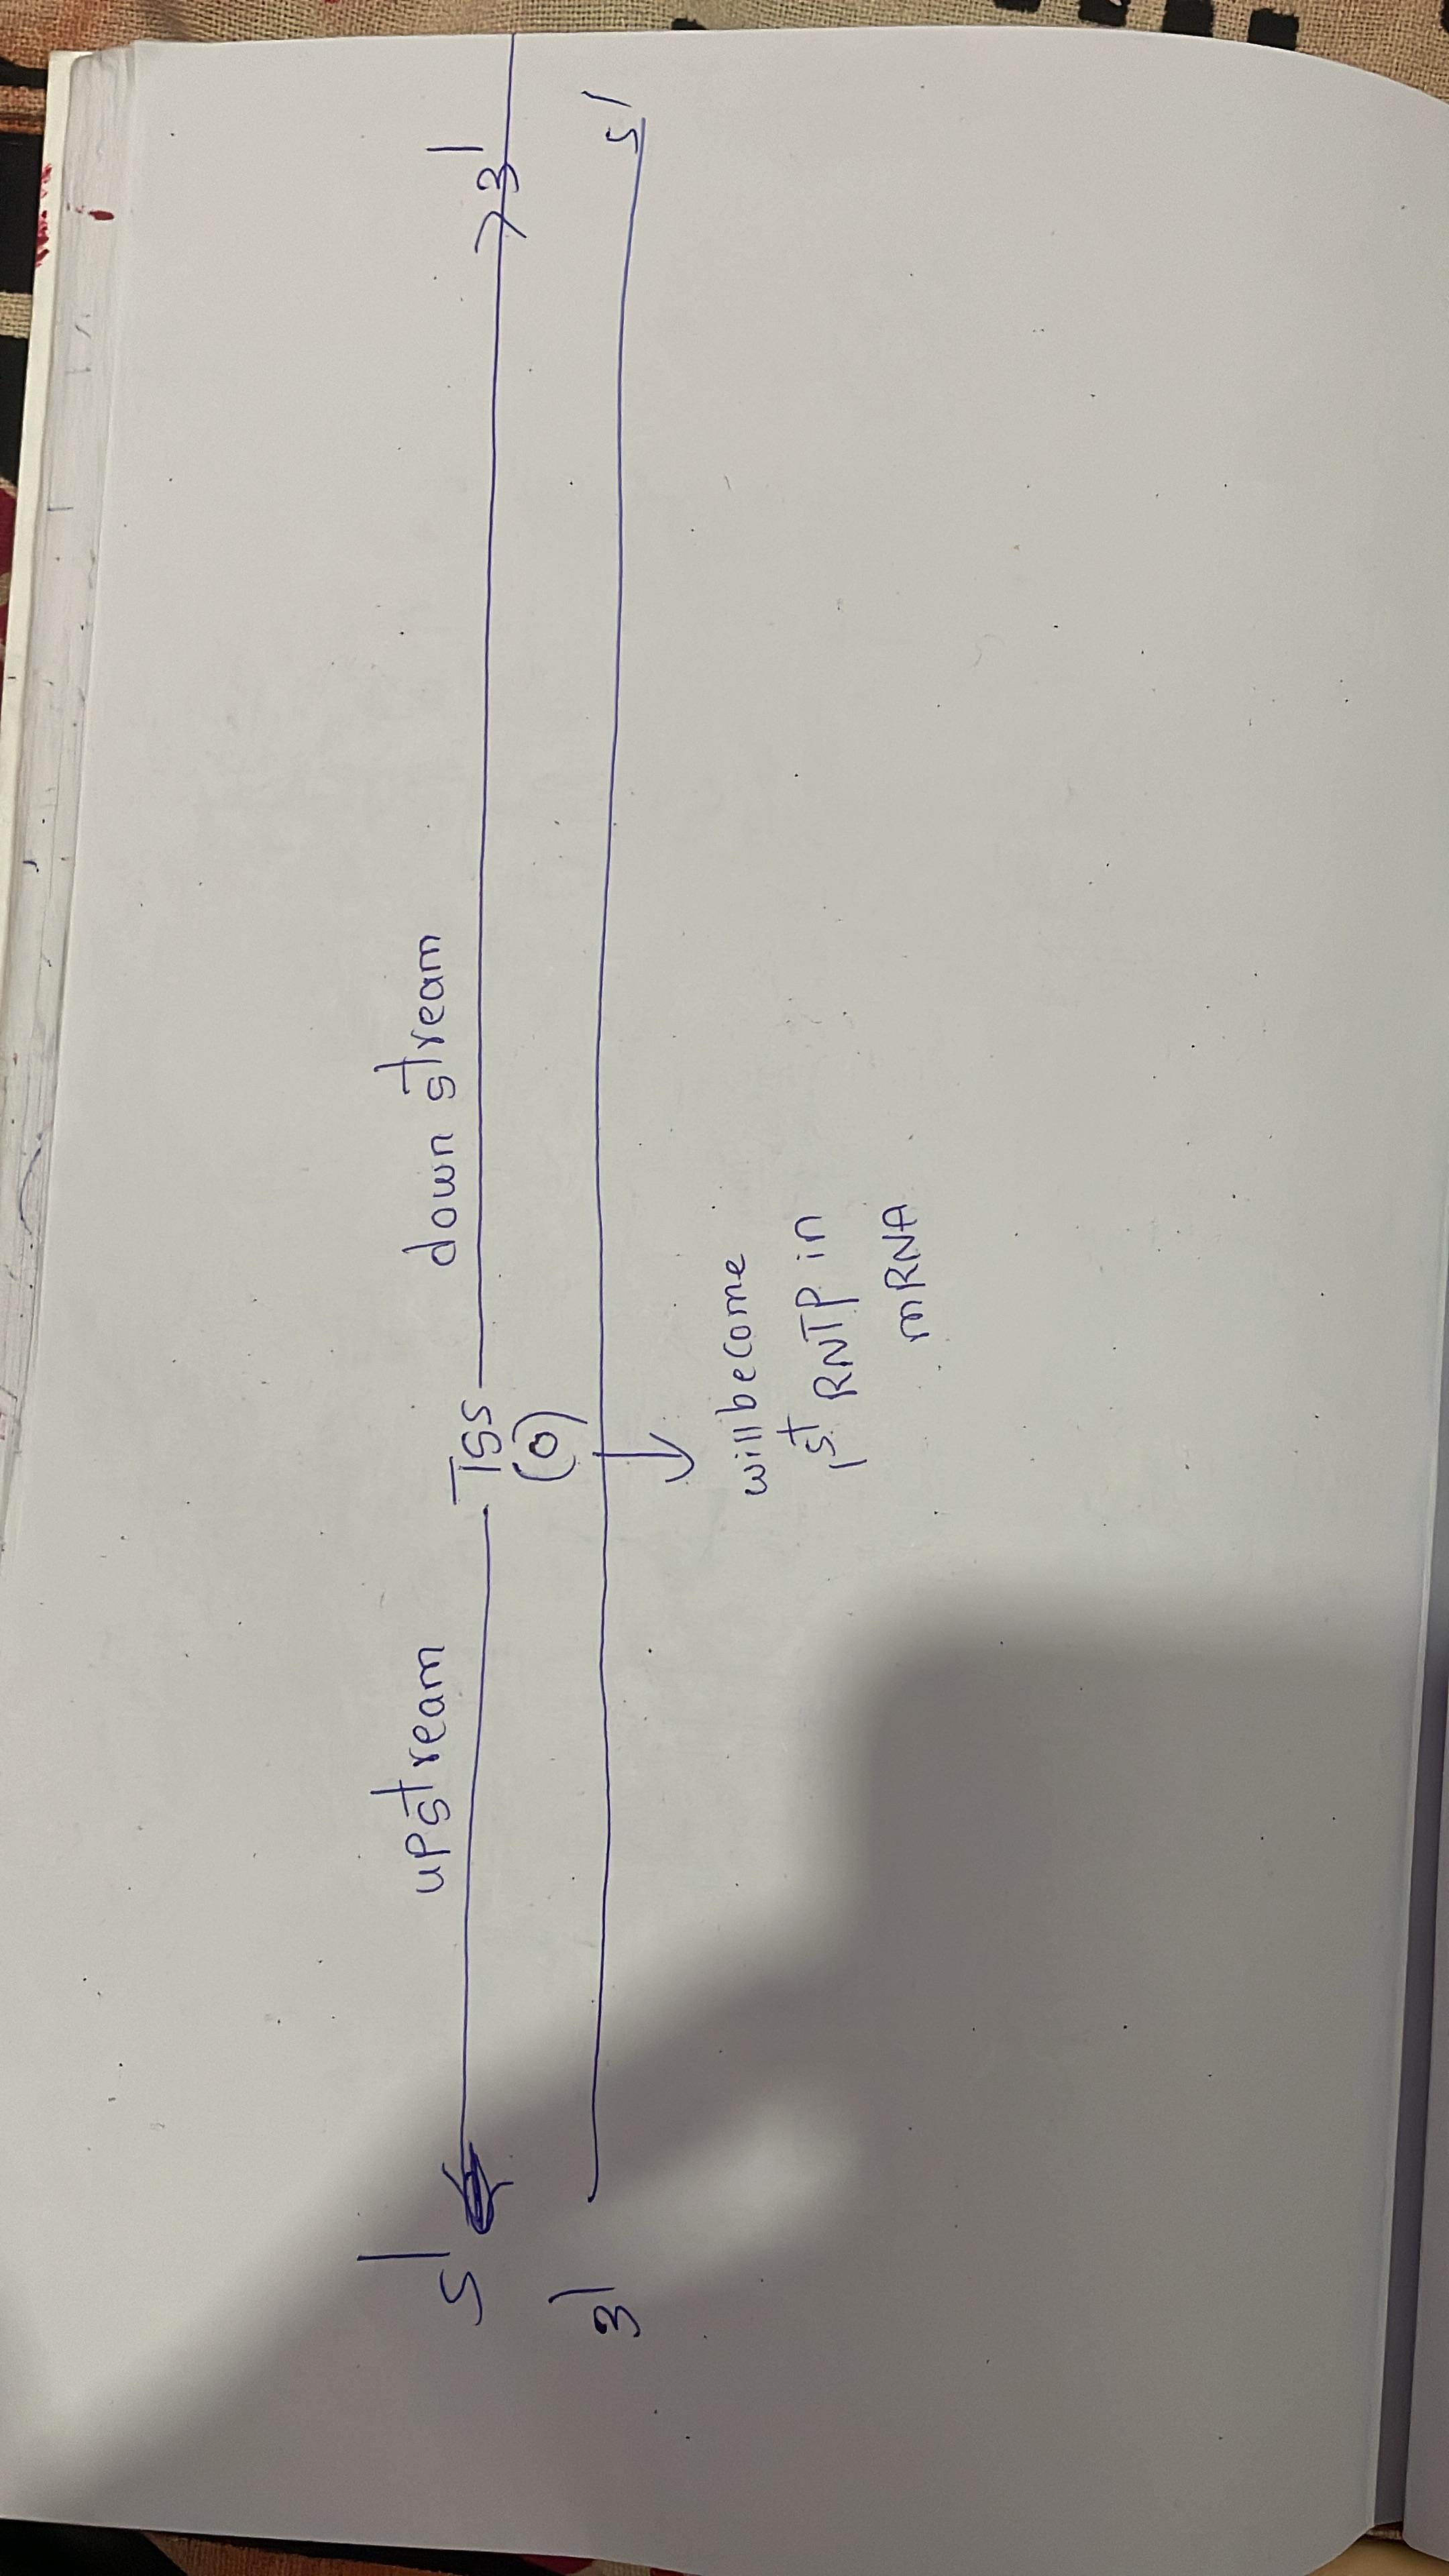 upstream down stream
5' TSS 3'
(0)
3' 5'
will become
1st RNTP in
mRNA